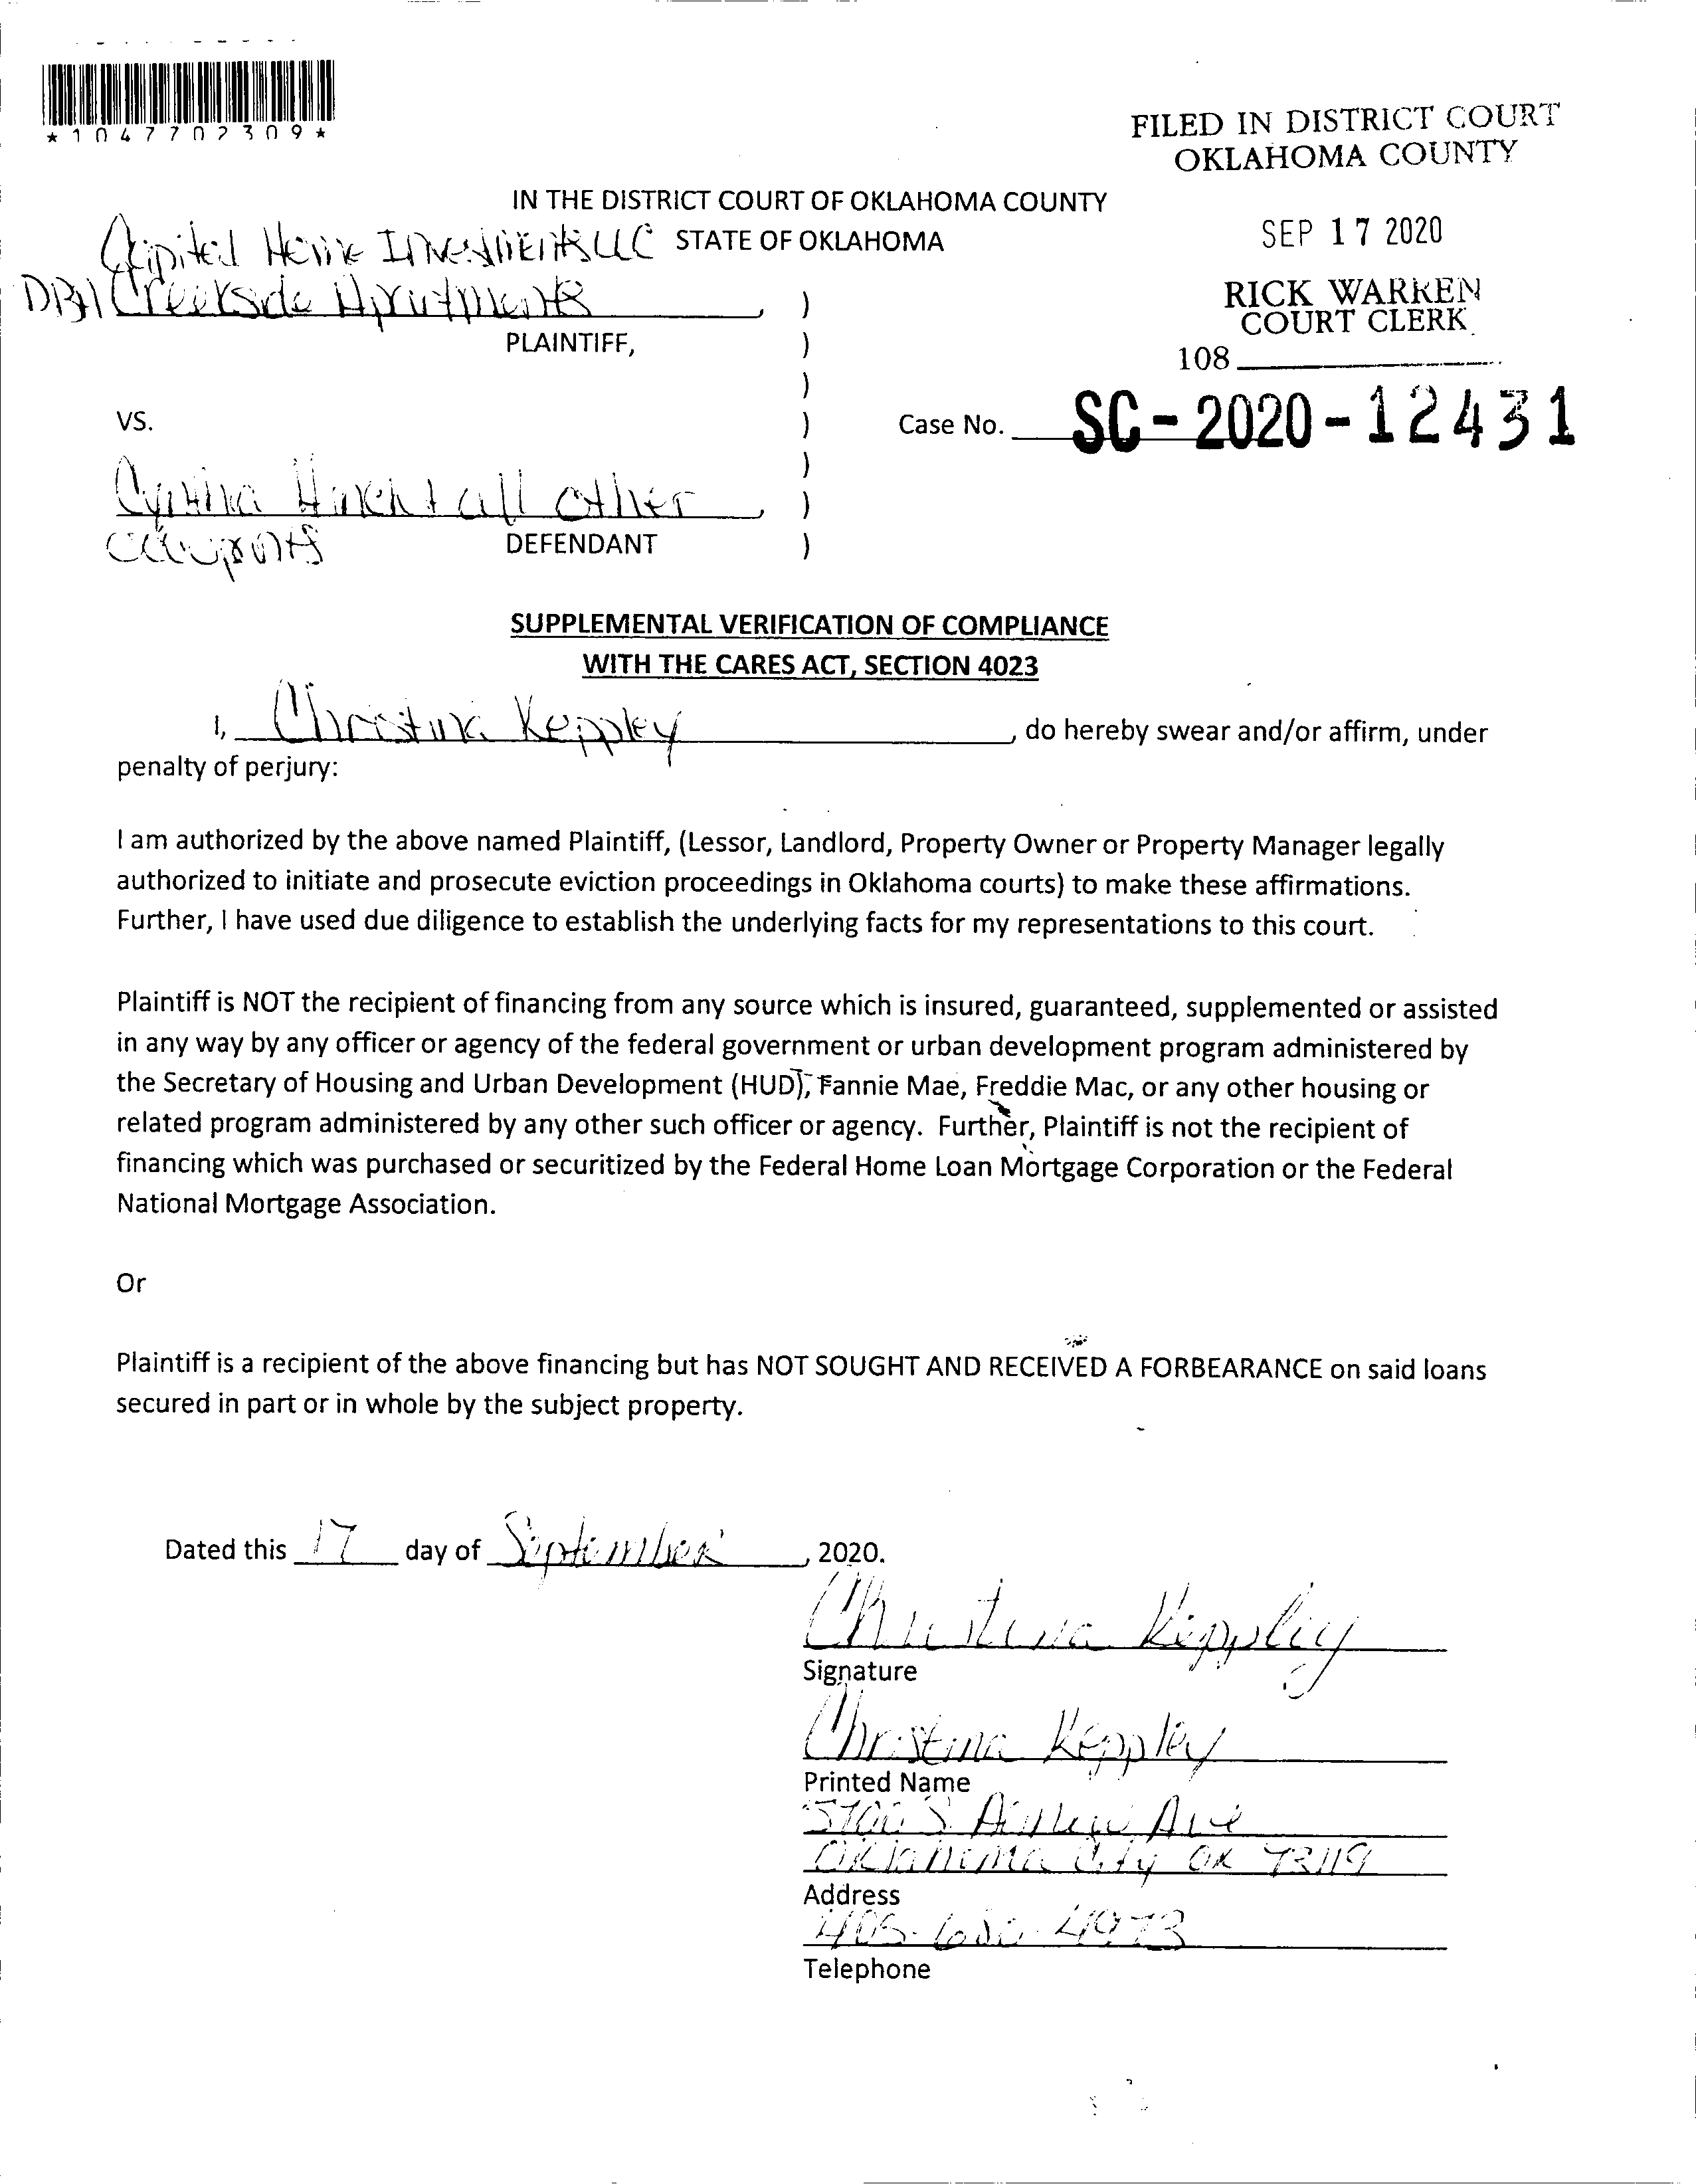 *1047702309*
FILED IN DISTRICT COURT
OKLAHOMA COUNTY
IN THE DISTRICT COURT OF OKLAHOMA COUNTY
Capital Home Investments LLC STATE OF OKLAHOMA
SEP 17 2020
DBA Creekside Apartments )
RICK WARREN
COURT CLERK
PLAINTIFF, )
108
)
VS. ) Case No. SC-2020-12431
)
Cynthia + all other , )
occupants DEFENDANT )
SUPPLEMENTAL VERIFICATION OF COMPLIANCE
WITH THE CARES ACT, SECTION 4023
I, Christina Keppley, do hereby swear and/or affirm, under
penalty of perjury:
I am authorized by the above named Plaintiff, (Lessor, Landlord, Property Owner or Property Manager legally
authorized to initiate and prosecute eviction proceedings in Oklahoma courts) to make these affirmations.
Further, I have used due diligence to establish the underlying facts for my representations to this court.
Plaintiff is NOT the recipient of financing from any source which is insured, guaranteed, supplemented or assisted
in any way by any officer or agency of the federal government or urban development program administered by
the Secretary of Housing and Urban Development (HUD), Fannie Mae, Freddie Mac, or any other housing or
related program administered by any other such officer or agency. Further, Plaintiff is not the recipient of
financing which was purchased or securitized by the Federal Home Loan Mortgage Corporation or the Federal
National Mortgage Association.
Or
Plaintiff is a recipient of the above financing but has NOT SOUGHT AND RECEIVED A FORBEARANCE on said loans
secured in part or in whole by the subject property.
Dated this 17 day of September, 2020.
Christina Keppley
Signature
Christina Keppley
Printed Name
S Ave
Oklahoma City OK 73119
Address
Telephone